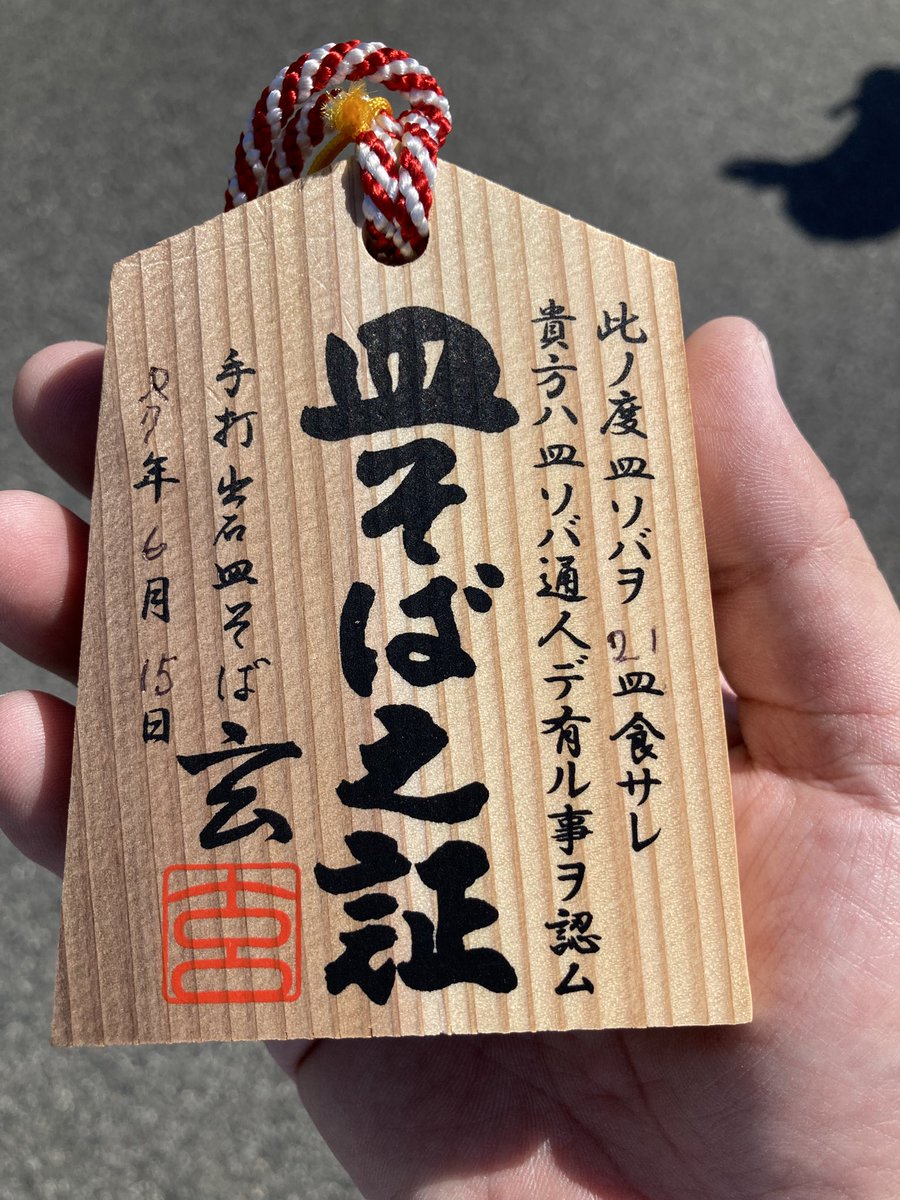 此ノ度皿ソバヲ21皿食サレ
貴方ハ皿ソバ通人デ有ル事ヲ認ム
皿そば之証
手打出石皿そば
玄
年6月15日
玄